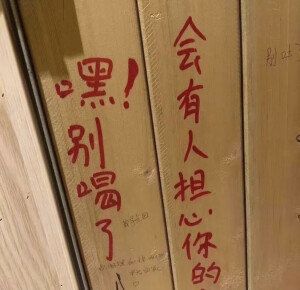 嘿!别喝了
会有人担心你的